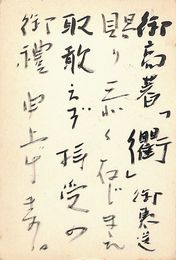 御高著「衢」御恵送
賜り忝く存じます
取敢えず拝受の
御禮申上げます。